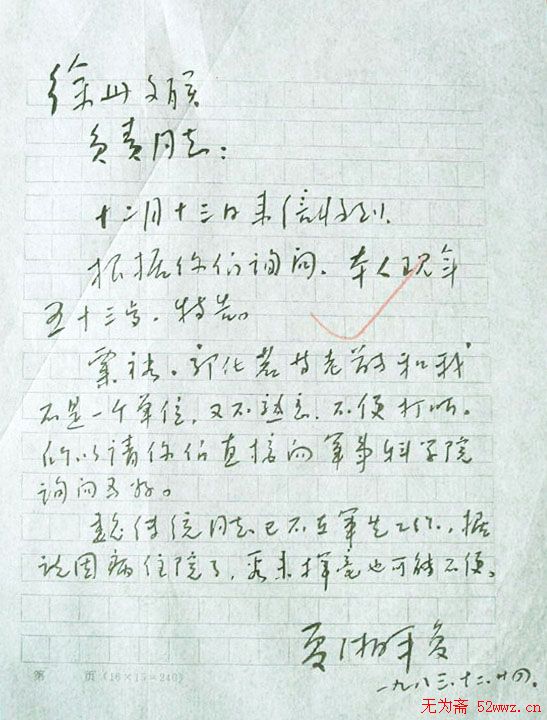 徐州文联
负责同志：
十二月十三日来信收到。
根据你们询问，本人现年
五十三岁。特告。
粟裕、郭化若等老首长和我
不是一个单位，又不熟悉，不便打听。
所以请你们直接向军事科学院
询问为好。
传统同志已不在军里工作，据
说因病住院了，看来挥毫也可能不便。
夏湘平复
一九八三.十二.廿四.
第 页(16×15=240)
无为斋 52wwz.cn